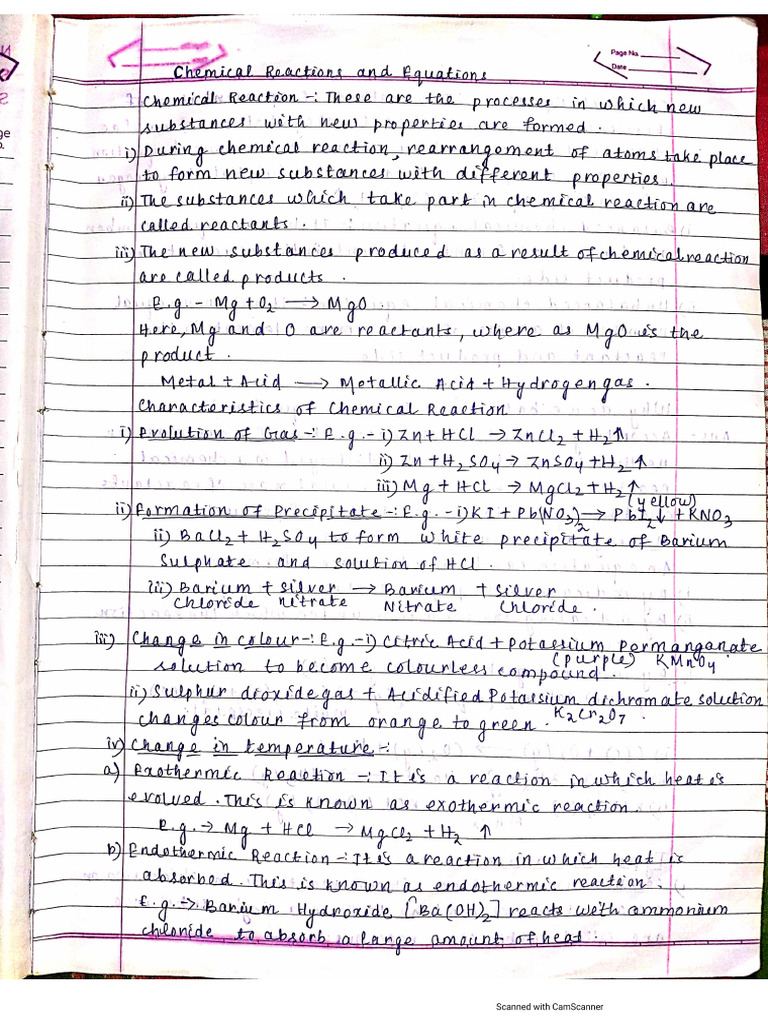 Page No.
Date
Chemical Reactions and Equations
Chemical Reaction -: These are the processes in which new
substances with new properties are formed.
i) During chemical reaction, rearrangement of atoms take place
to form new substances with different properties.
ii) The substances which take part in chemical reaction are
called reactants.
iii) The new substances produced as a result of chemical reaction
are called products.
E.g. - Mg + O2 → MgO.
Here, Mg and O are reactants, where as MgO is the
product.
Metal + Acid → Metallic Acid + Hydrogen gas.
Characteristics of Chemical Reaction
i) Evolution of Gas -: E.g. - i) Zn + HCl → ZnCl2 + H2↑
ii) Zn + H2SO4 → ZnSO4 + H2↑
iii) Mg + HCl → MgCl2 + H2↑
(yellow)
ii) Formation of Precipitate -: E.g. - i) KI + Pb(NO3)2 → PbI2↓ + KNO3
ii) BaCl2 + H2SO4 to form white precipitate of Barium
Sulphate and solution of HCl.
iii) Barium + Silver → Barium + Silver
Chloride Nitrate Nitrate Chloride.
iii) Change in colour -: E.g. - i) Citric Acid + Potassium Permanganate
(purple) KMnO4
solution to become colourless compound.
ii) Sulphur dioxide gas + Acidified Potassium dichromate solution
changes colour from orange to green. K2Cr2O7.
iv) Change in temperature -:
a) Exothermic Reaction -: It is a reaction in which heat is
evolved. This is known as exothermic reaction.
E.g. → Mg + HCl → MgCl2 + H2 ↑
b) Endothermic Reaction -: It is a reaction in which heat is
absorbed. This is known as endothermic reaction.
E.g. → Barium Hydroxide [Ba(OH)2] reacts with ammonium
chloride to absorb a large amount of heat.
Scanned with CamScanner